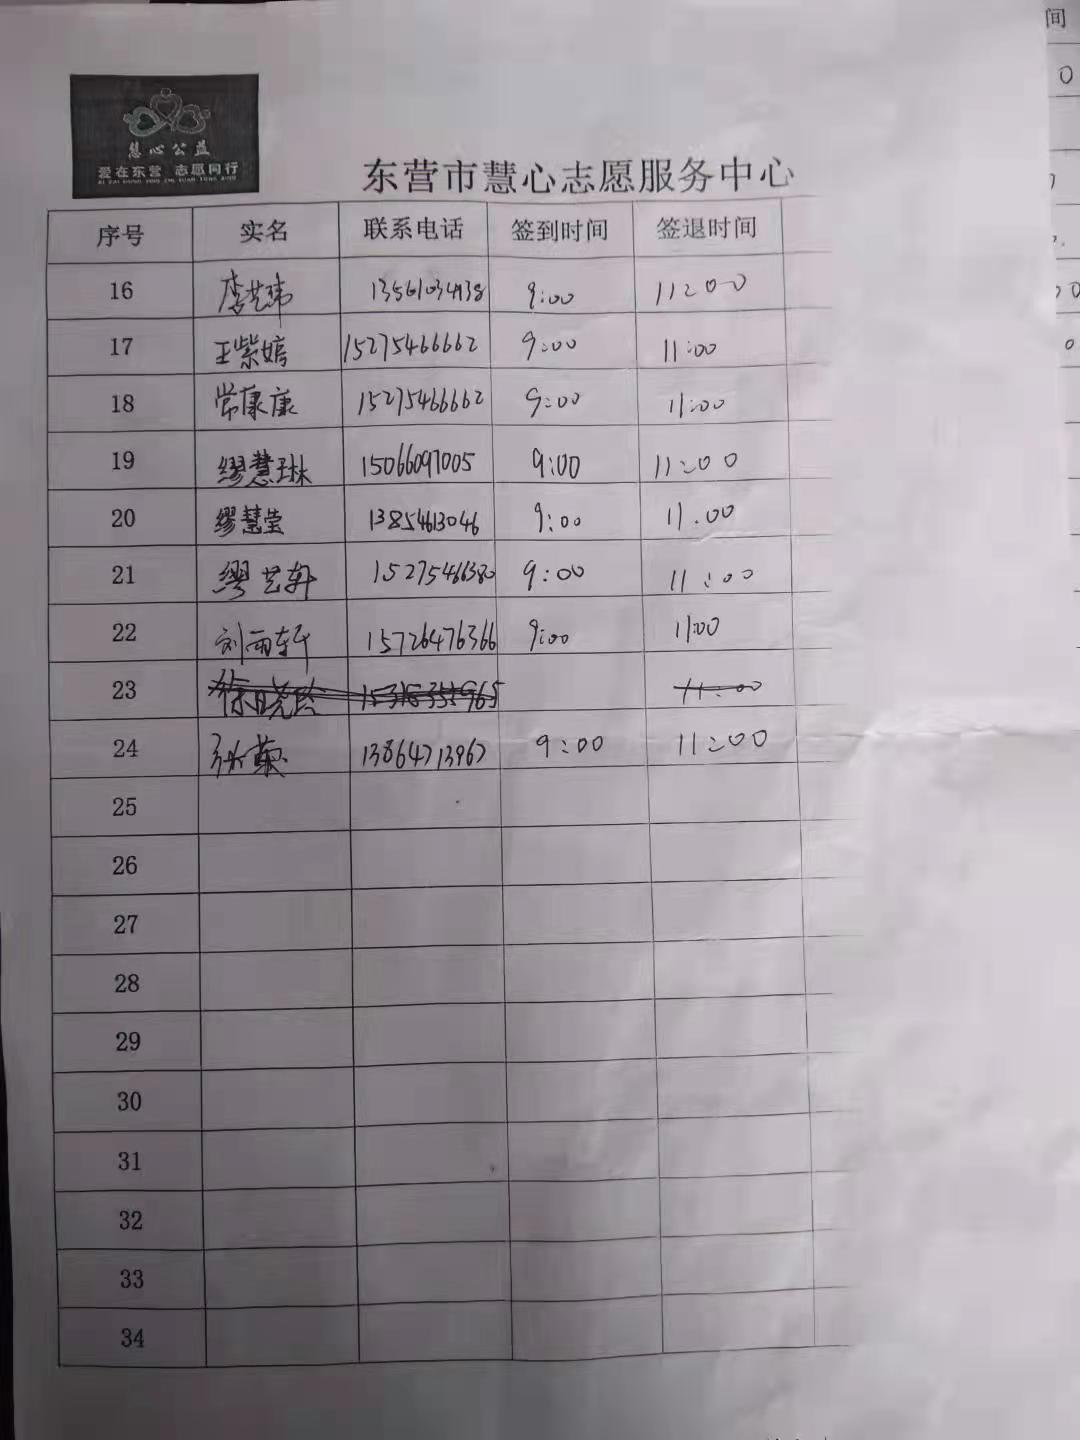 间
慧心公益
爱在东营 志愿同行
AI ZAI DONG YING ZHI YUAN TONG XING
东营市慧心志愿服务中心
序号 实名 联系电话 签到时间 签退时间
16 李艺玮 13561034938 9:00 11:00
17 王紫嫣 15275466662 9:00 11:00
18 常康康 15275466662 9:00 11:00
19 缪慧琳 15066097005 9:00 11:00
20 缪慧莹 13854613046 9:00 11.00
21 缪艺轩 15275466380 9:00 11:00
22 刘雨轩 15726476366 9:00 11:00
23 11:00
24 张荣 13864713967 9:00 11:00
25
26
27
28
29
30
31
32
33
34